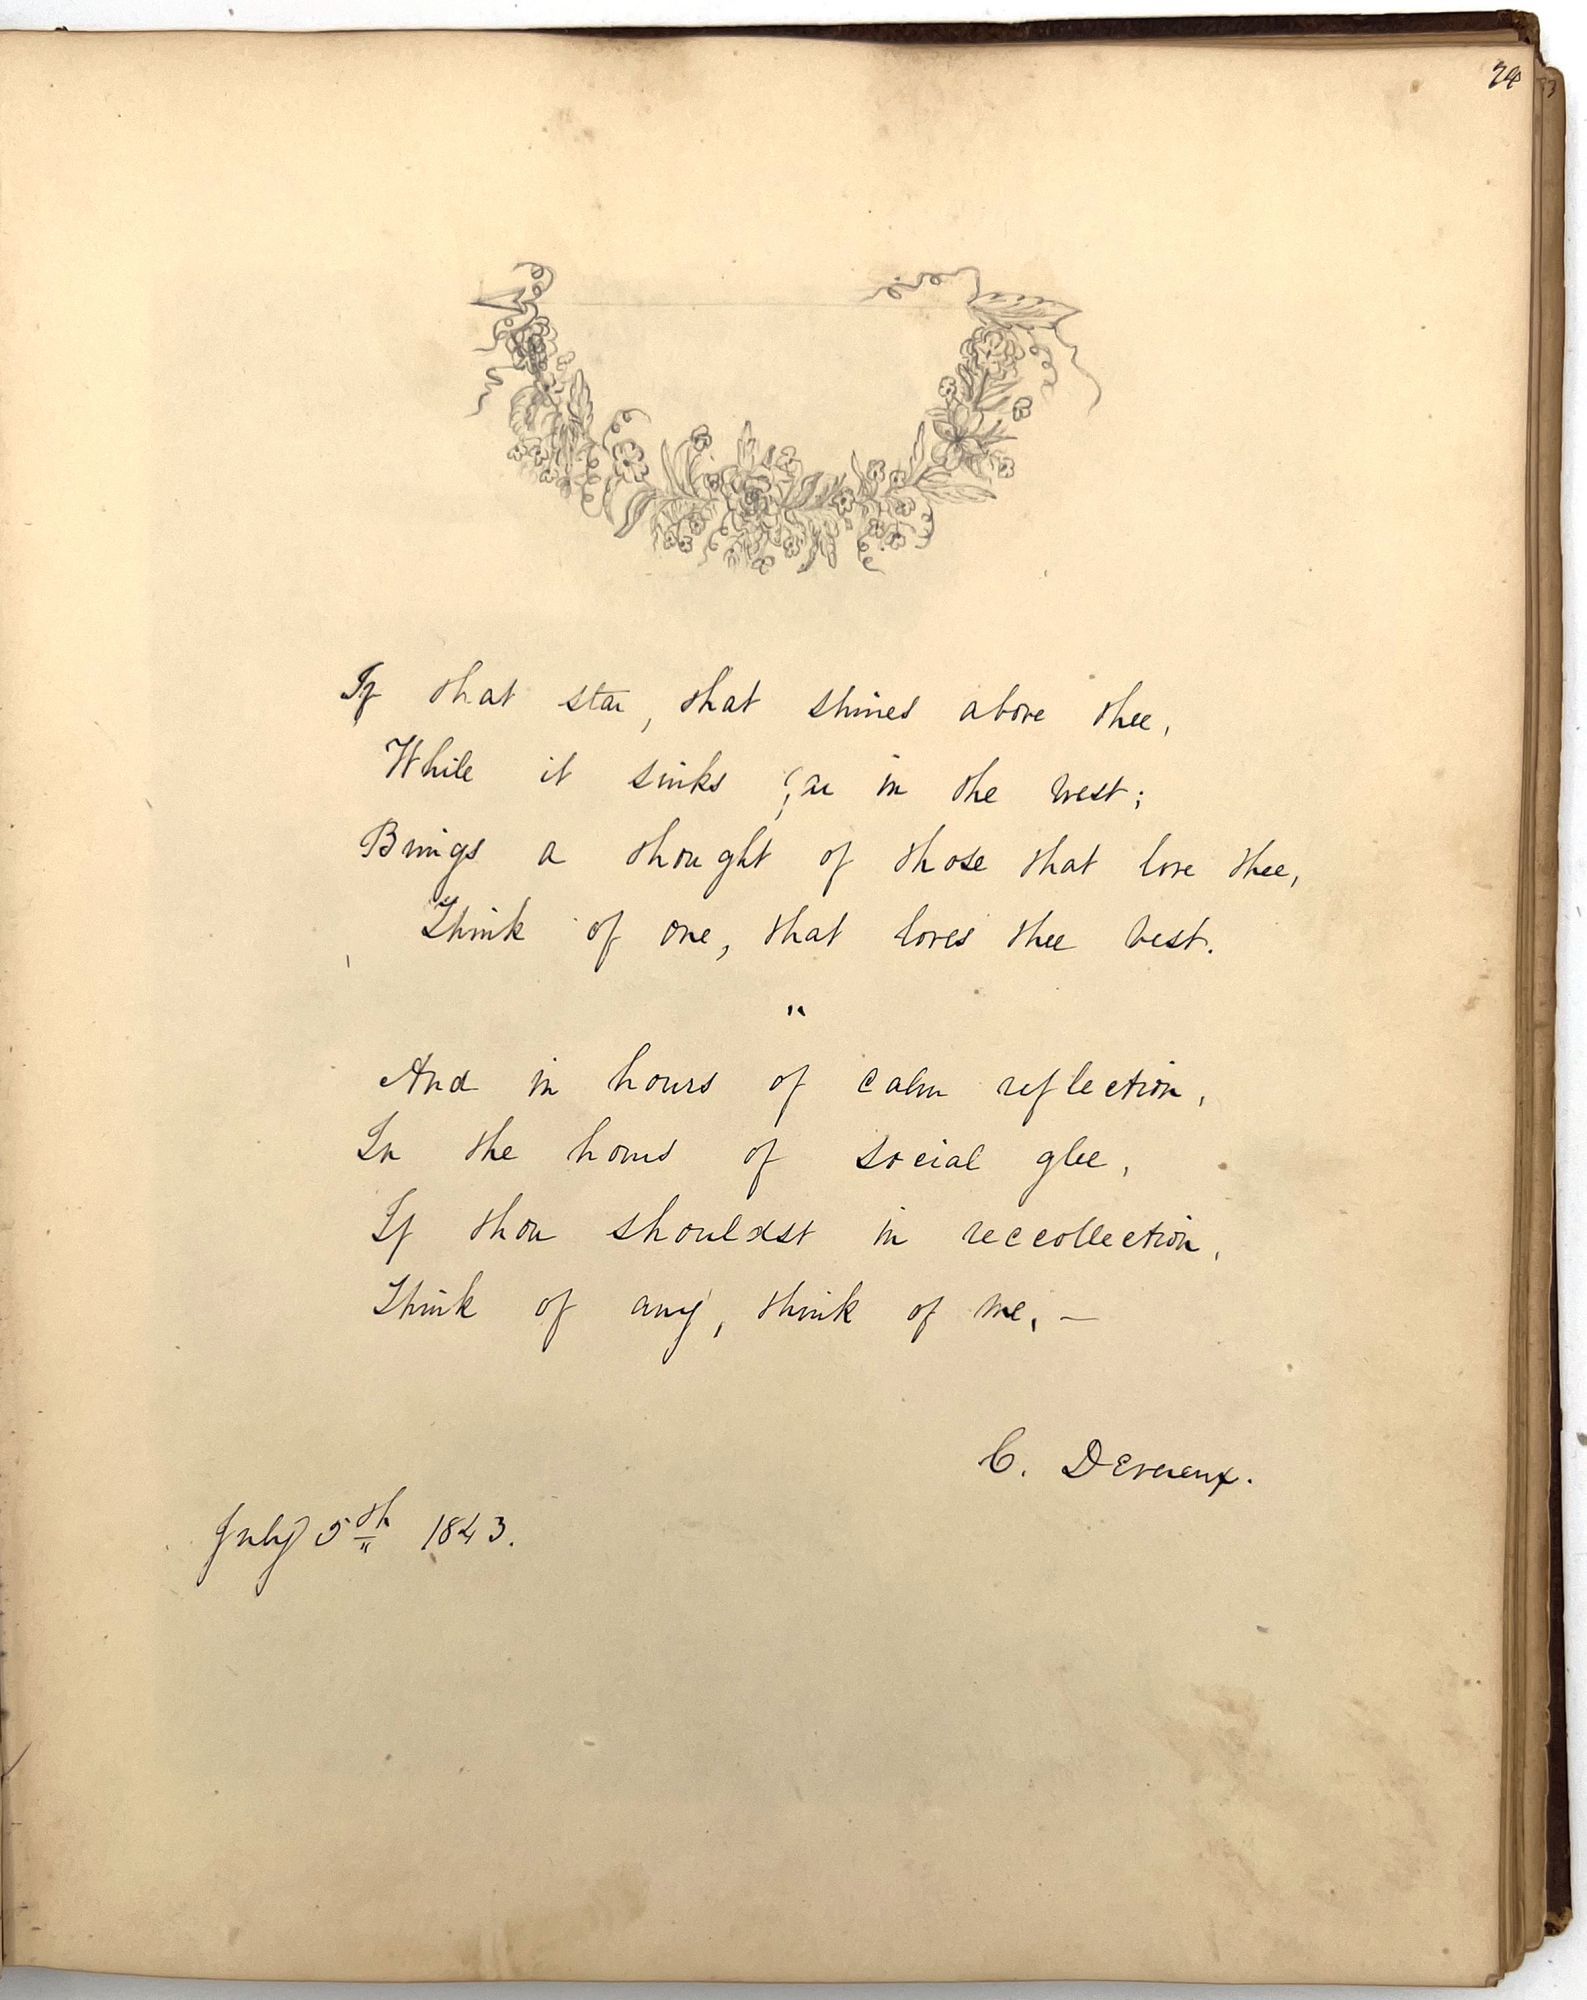 If that star, that shines above thee,
While it sinks far in the west;
Brings a thought of those that love thee,
Think of one, that loves thee best.
"
And in hours of calm reflection,
In the hours of social glee,
If thou shouldst in reccollection,
Think of any, think of me. —
C. Devereux.
July 5th 1843.